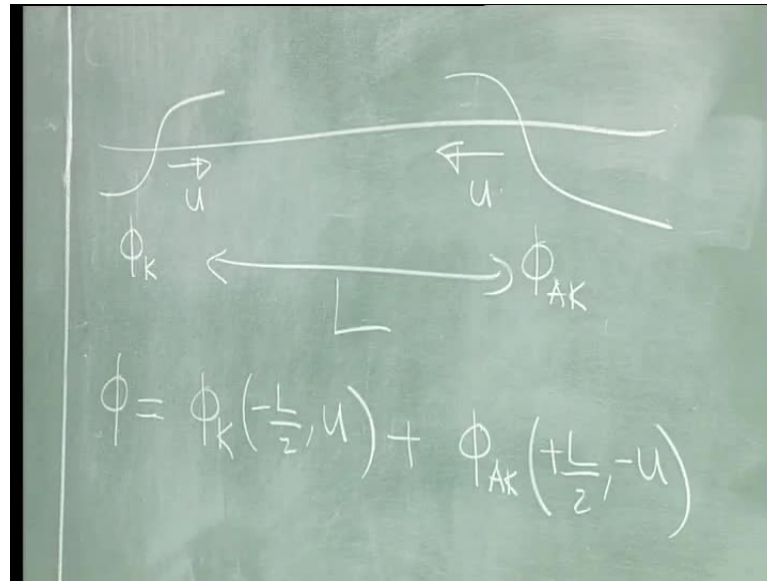 u u
ϕ_K ϕ_AK
L
ϕ = ϕ_K(-L/2, u) + ϕ_AK(+L/2, -u)